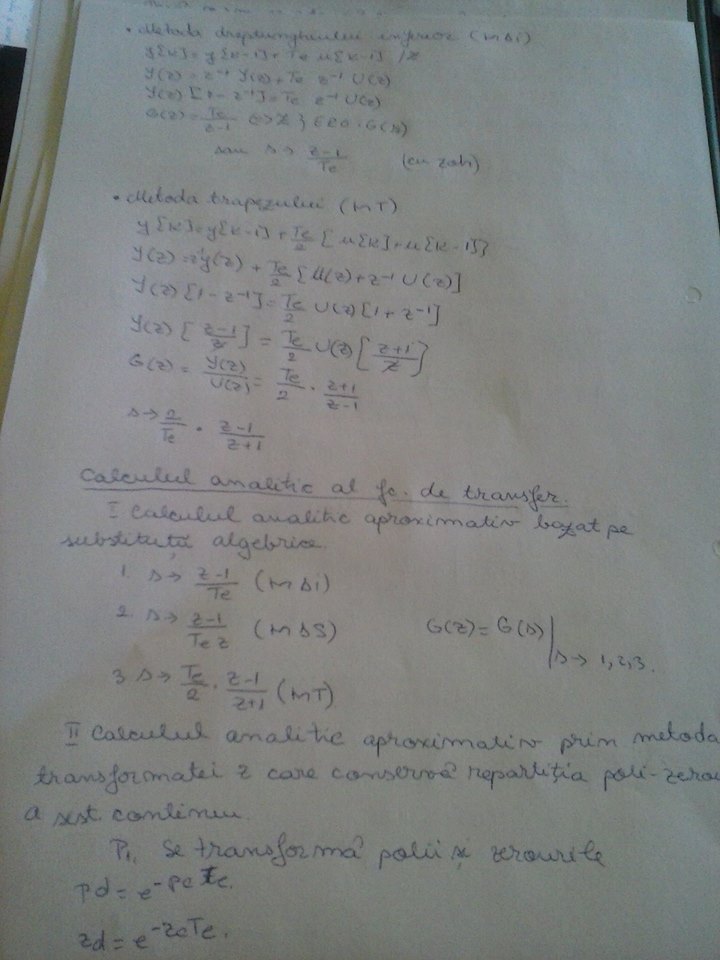 • Metoda dreptunghiului inferior (MDi)
y[k]=y[k-1]+Te u[k-1] /Z
Y(z)=z⁻¹ Y(z)+Te z⁻¹ U(z)
Y(z)[1-z⁻¹]=Te z⁻¹ U(z)
G(z)=Te/(z-1) <=> Z{ER0·G(s)}
sau s→ (z-1)/Te (cu zoh)
• Metoda trapezului (MT)
y[k]=y[k-1]+Te/2[u[k]+u[k-1]]
Y(z)=z⁻¹Y(z)+Te/2[U(z)+z⁻¹U(z)]
Y(z)[1-z⁻¹]=Te/2 U(z)[1+z⁻¹]
Y(z)[(z-1)/z]=Te/2 U(z)[(z+1)/z]
G(z)=Y(z)/U(z)=Te/2·(z+1)/(z-1)
s→2/Te·(z-1)/(z+1)
Calculul analitic al fc. de transfer.
I Calculul analitic aproximativ bazat pe
substituță algebrice.
1. s→(z-1)/Te (MDi)
2. s→(z-1)/(Te z) (MDS) G(z)=G(s)|s→1,2,3.
3 s→Te/2·(z-1)/(z+1) (MT)
II Calculul analitic aproximativ prin metoda
transformatei z care conservă repartiția poli-zerou
a sist. continuu.
P1. Se transformă polii și zerourile
pd=e^-pcTe.
zd=e^-zcTe.